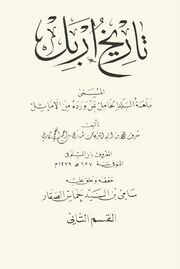 تاريخ اربل
المسمى
نباهة البلد الخامل بمن ورده من الأماثل
تأليف
شرف الدين أبي البركات المبارك بن أحمد اللخمي الإربلي
المعروف بابن المستوفي
المتوفى سنة ٦٣٧ هـ ١٢٣٩ م
حققه وعلق عليه
سامي بن السيد خماس الصقار
القسم الثاني